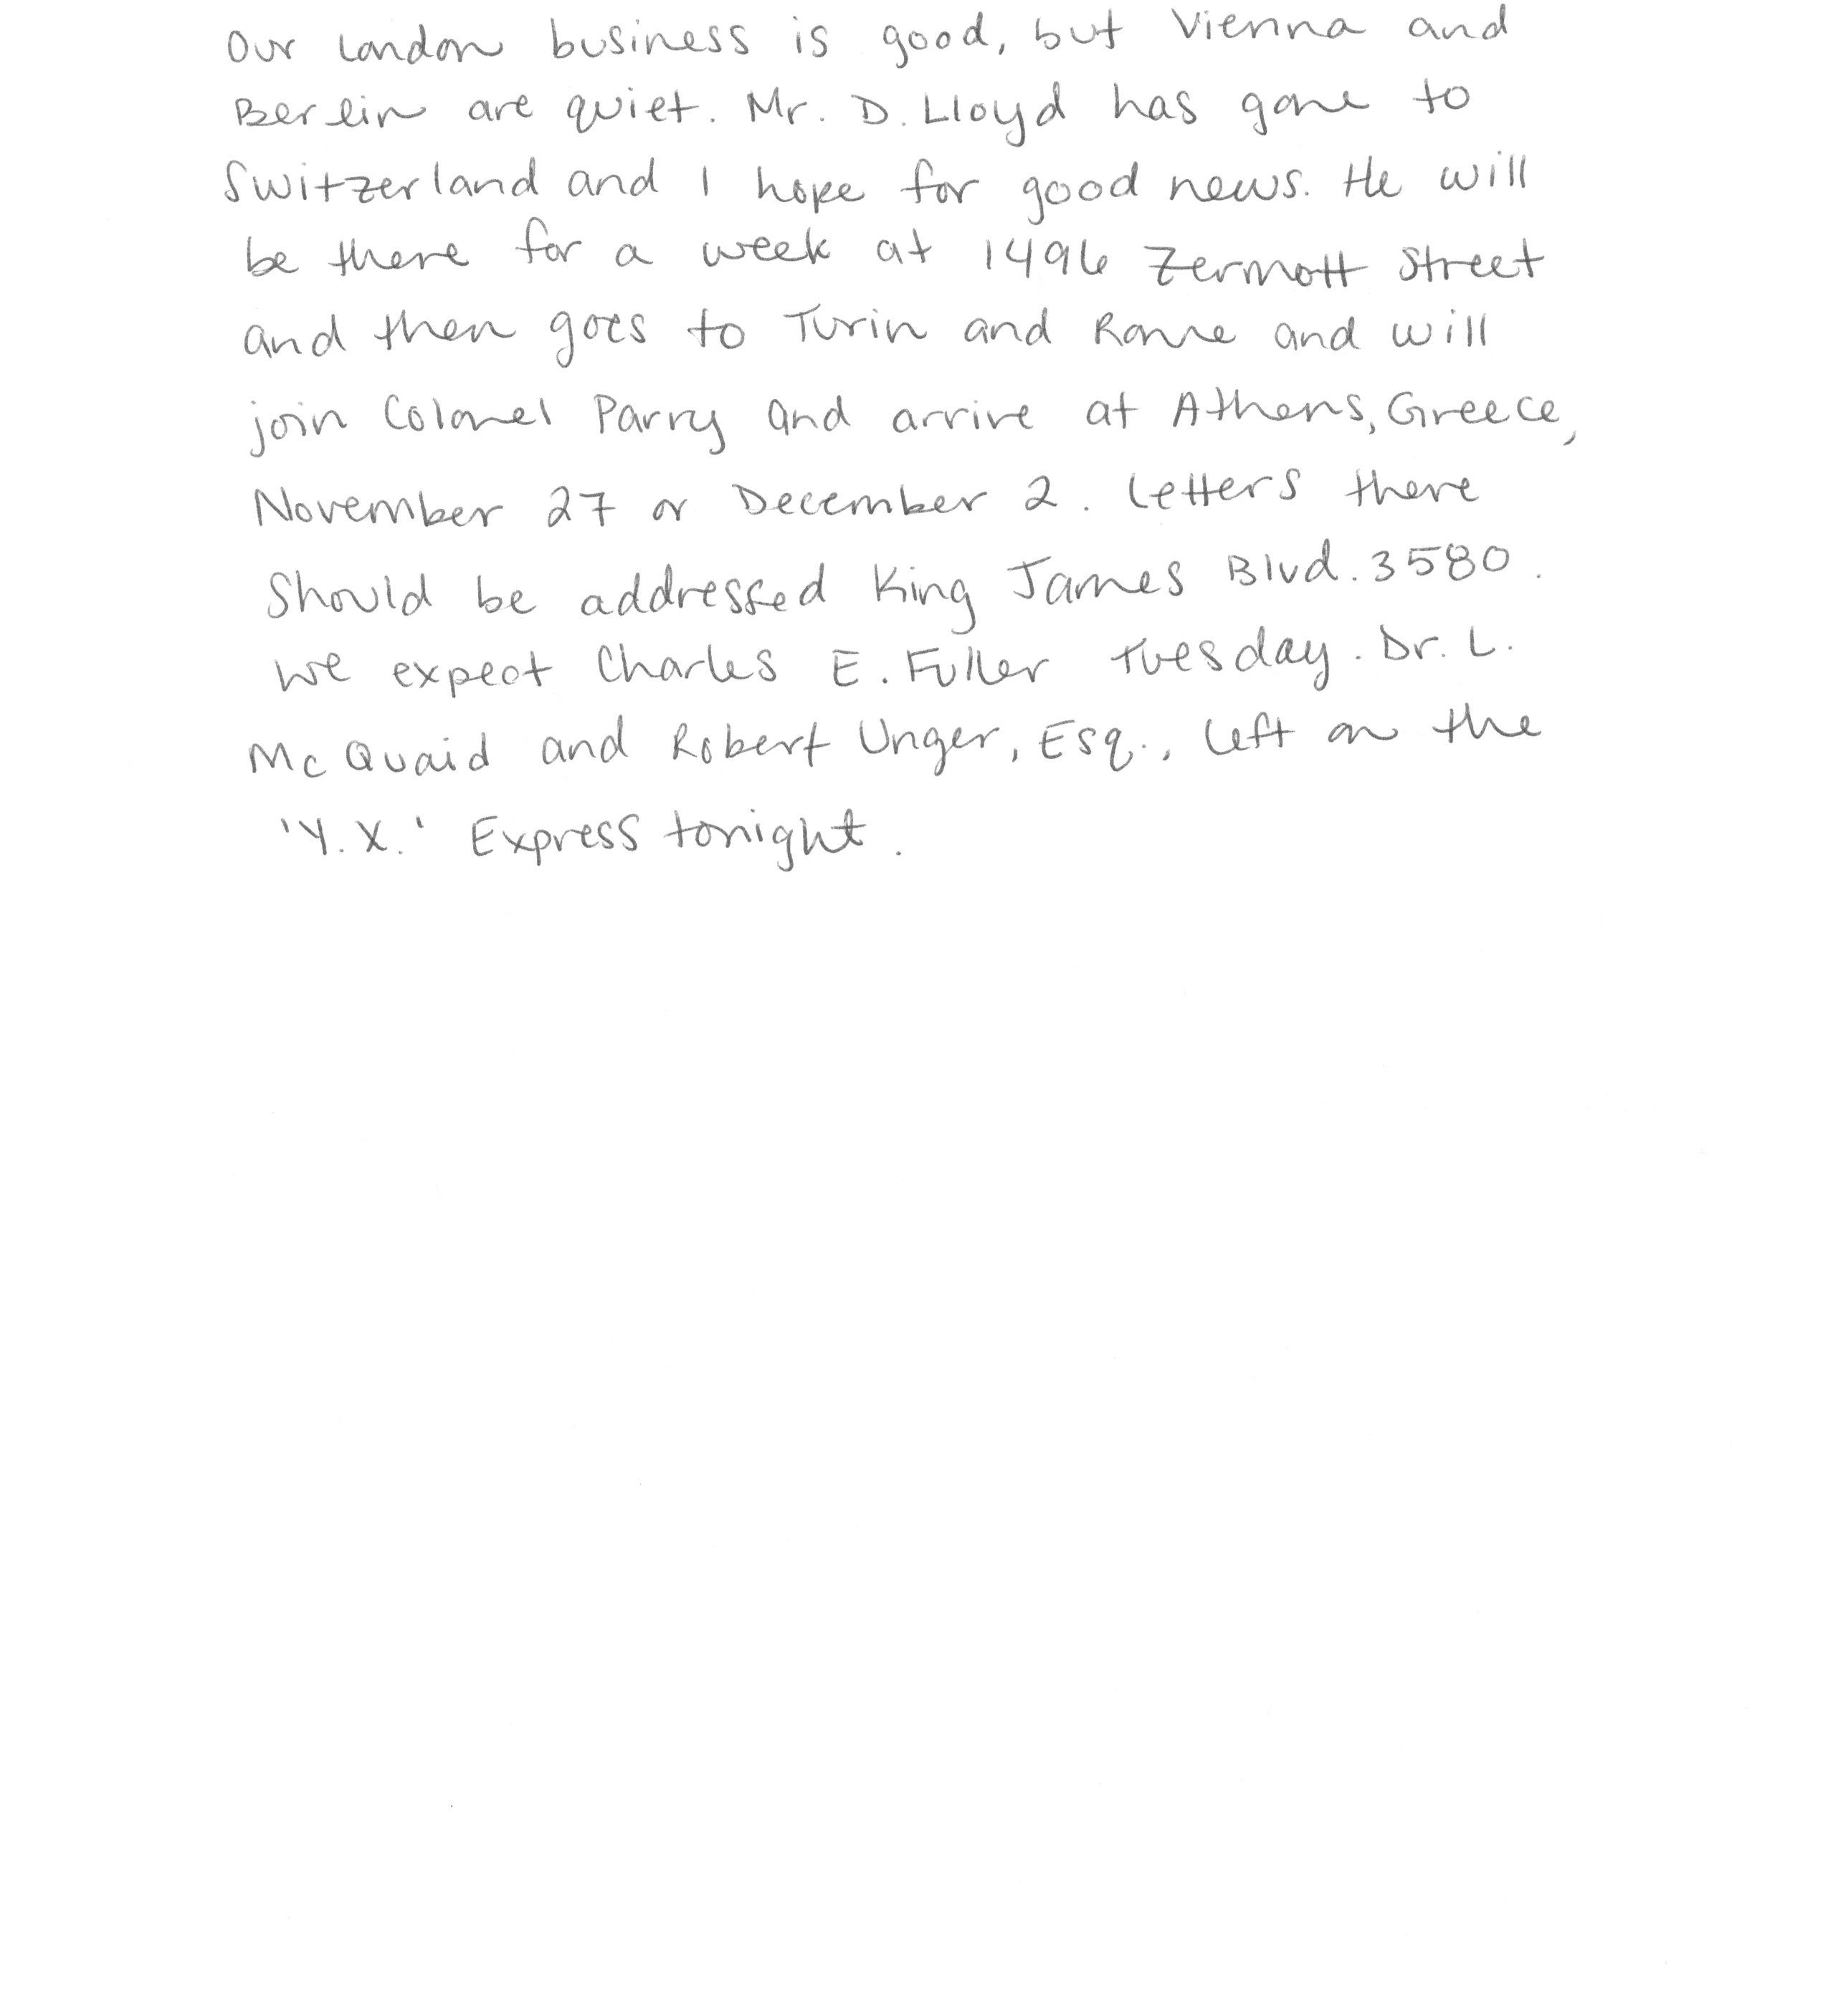 Our London business is good, but Vienna and
Berlin are quiet. Mr. D. Lloyd has gone to
Switzerland and I hope for good news. He will
be there for a week at 1496 Zermott Street
and then goes to Turin and Rome and will
join Colonel Parry and arrive at Athens, Greece,
November 27 or December 2. Letters there
Should be addressed King James Blvd. 3580.
We expect Charles E. Fuller Tuesday. Dr. L.
McQuaid and Robert Unger, Esq., left on the
'Y.X.' Express tonight.